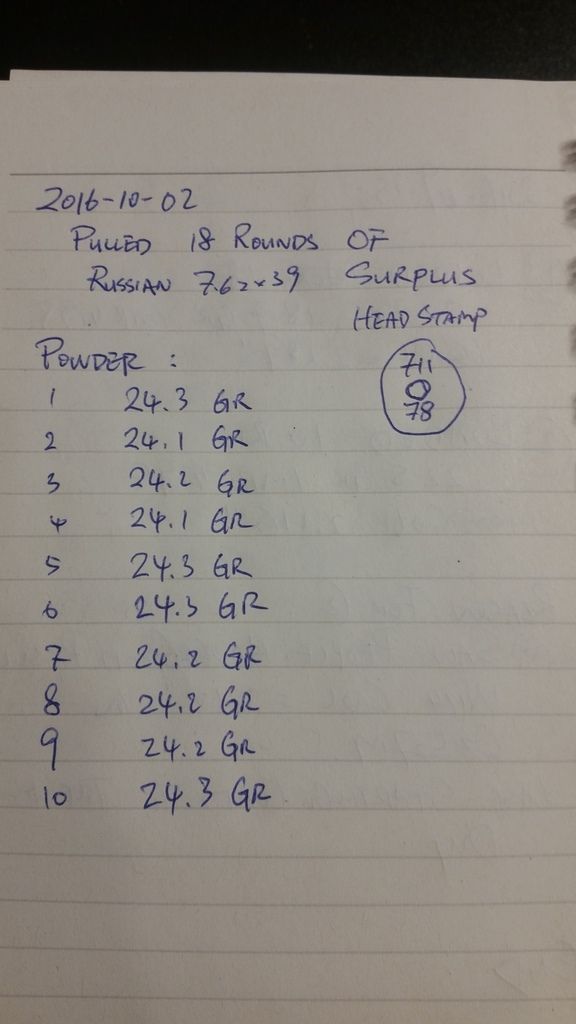 2016-10-02
PULLED 18 ROUNDS OF
RUSSIAN 7.62x39 SURPLUS
HEAD STAMP
711
78
POWDER :
1 24.3 GR
2 24.1 GR
3 24.2 GR
4 24.1 GR
5 24.3 GR
6 24.3 GR
7 24.2 GR
8 24.2 GR
9 24.2 GR
10 24.3 GR